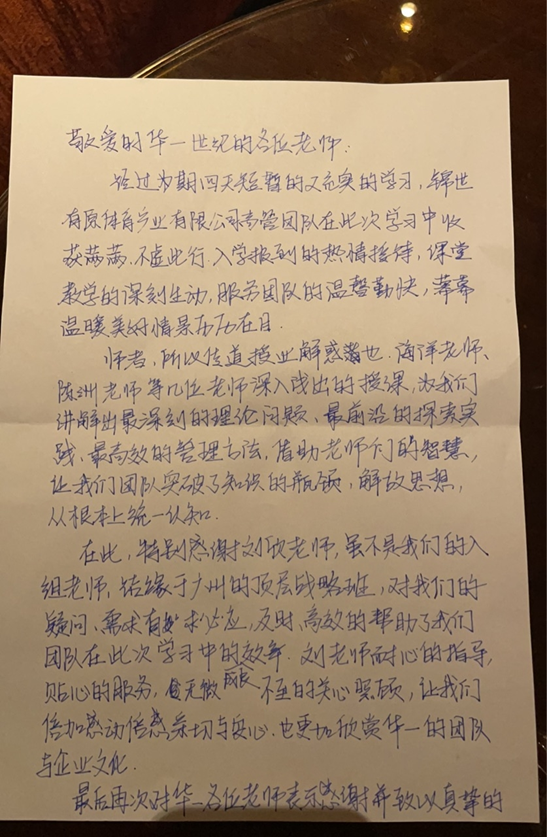 敬爱的华一世纪的各位老师:
经过为期四天短暂的又充实的学习,锦世
有原体育产业有限公司高管团队在此次学习中收
获满满.不虚此行.入学报到的热情接待,课堂
教学的深刻生动,服务团队的温馨勤快,幕幕
温暖美好情景历历在目.
师者,所以传道授业解惑也.海洋老师、
陈洲老师等几位老师深入浅出的授课,为我们
讲解出最深刻的理论问题、最前沿的探索实
践、最高效的管理方法.借助老师们的智慧,
让我们团队突破了知识的瓶颈,解放思想,
从根本上统一认知.
在此,特别感谢刘欣老师,虽不是我们的入
组老师,结缘于广州的顶层战略班,对我们的
疑问、需求有求必应,及时、高效的帮助了我们
团队在此次学习中的效率.刘老师耐心的指导,
贴心的服务,无微不至的关心照顾,让我们
倍加感动倍感亲切与安心.也更加欣赏华一的团队
与企业文化.
最后再次对华一各位老师表示感谢并致以真挚的